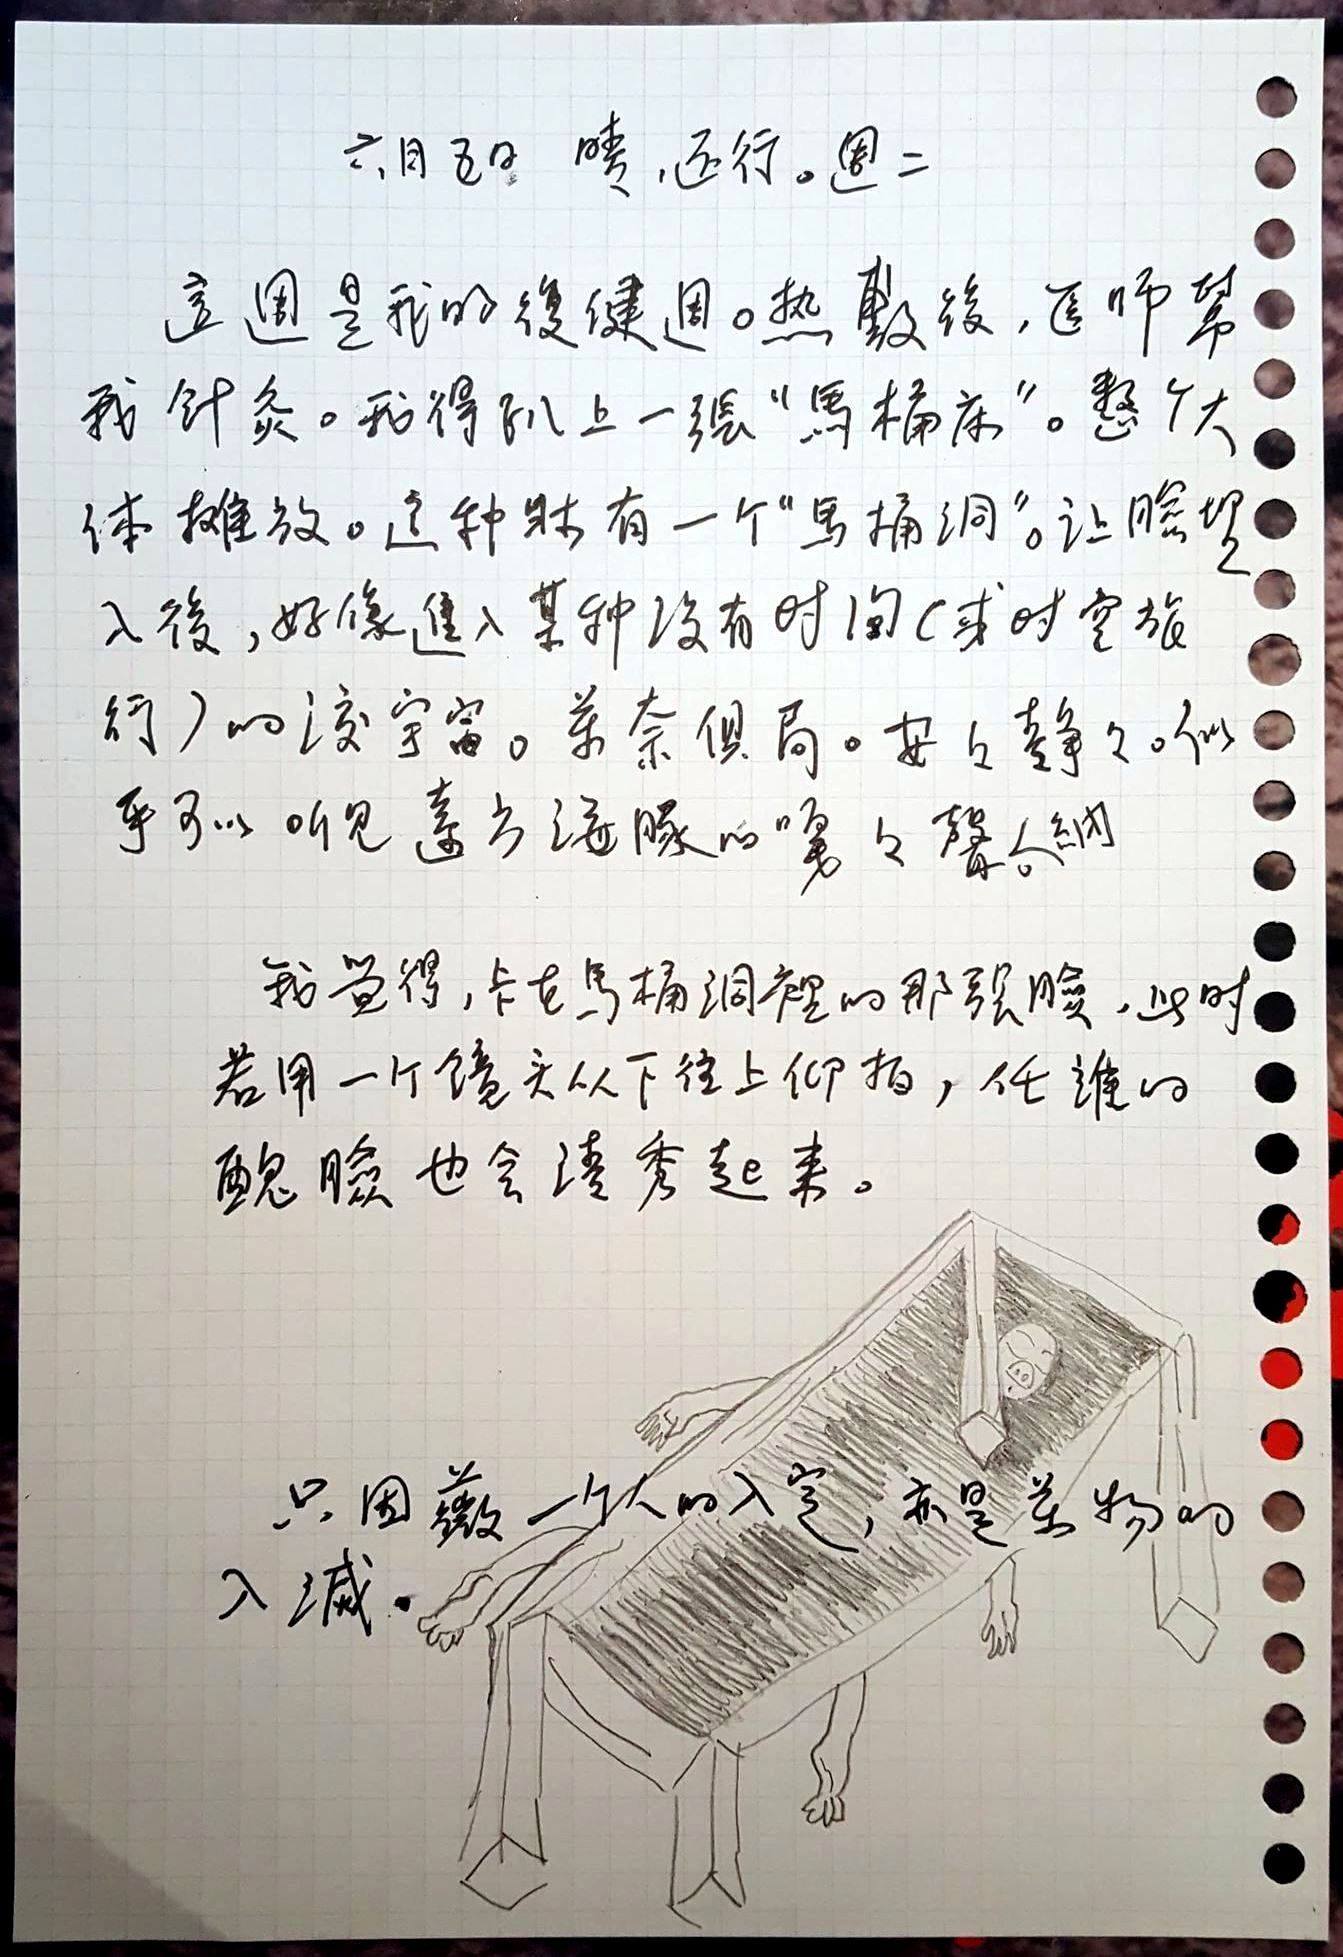 六月五日 晴,还行。週二
這週是我的復健週。热敷後,医师幫
我針灸。我得趴上一張“馬桶床”。整个大
体摊放。這种床有一个“馬桶洞”。让臉埋
入後,好像進入某种沒有时间(或时空旅
行)的渡宇宙。萬奈俱局。安々靜々。似
乎可以听见遠方海豚的嘎々聲
我覚得,卡在馬桶洞裡的那張臉,此时
若用一个鏡头从下往上仰拍,任誰的
醜臉也会清秀起来。
只因一个人的入定,亦是萬物的
入滅.